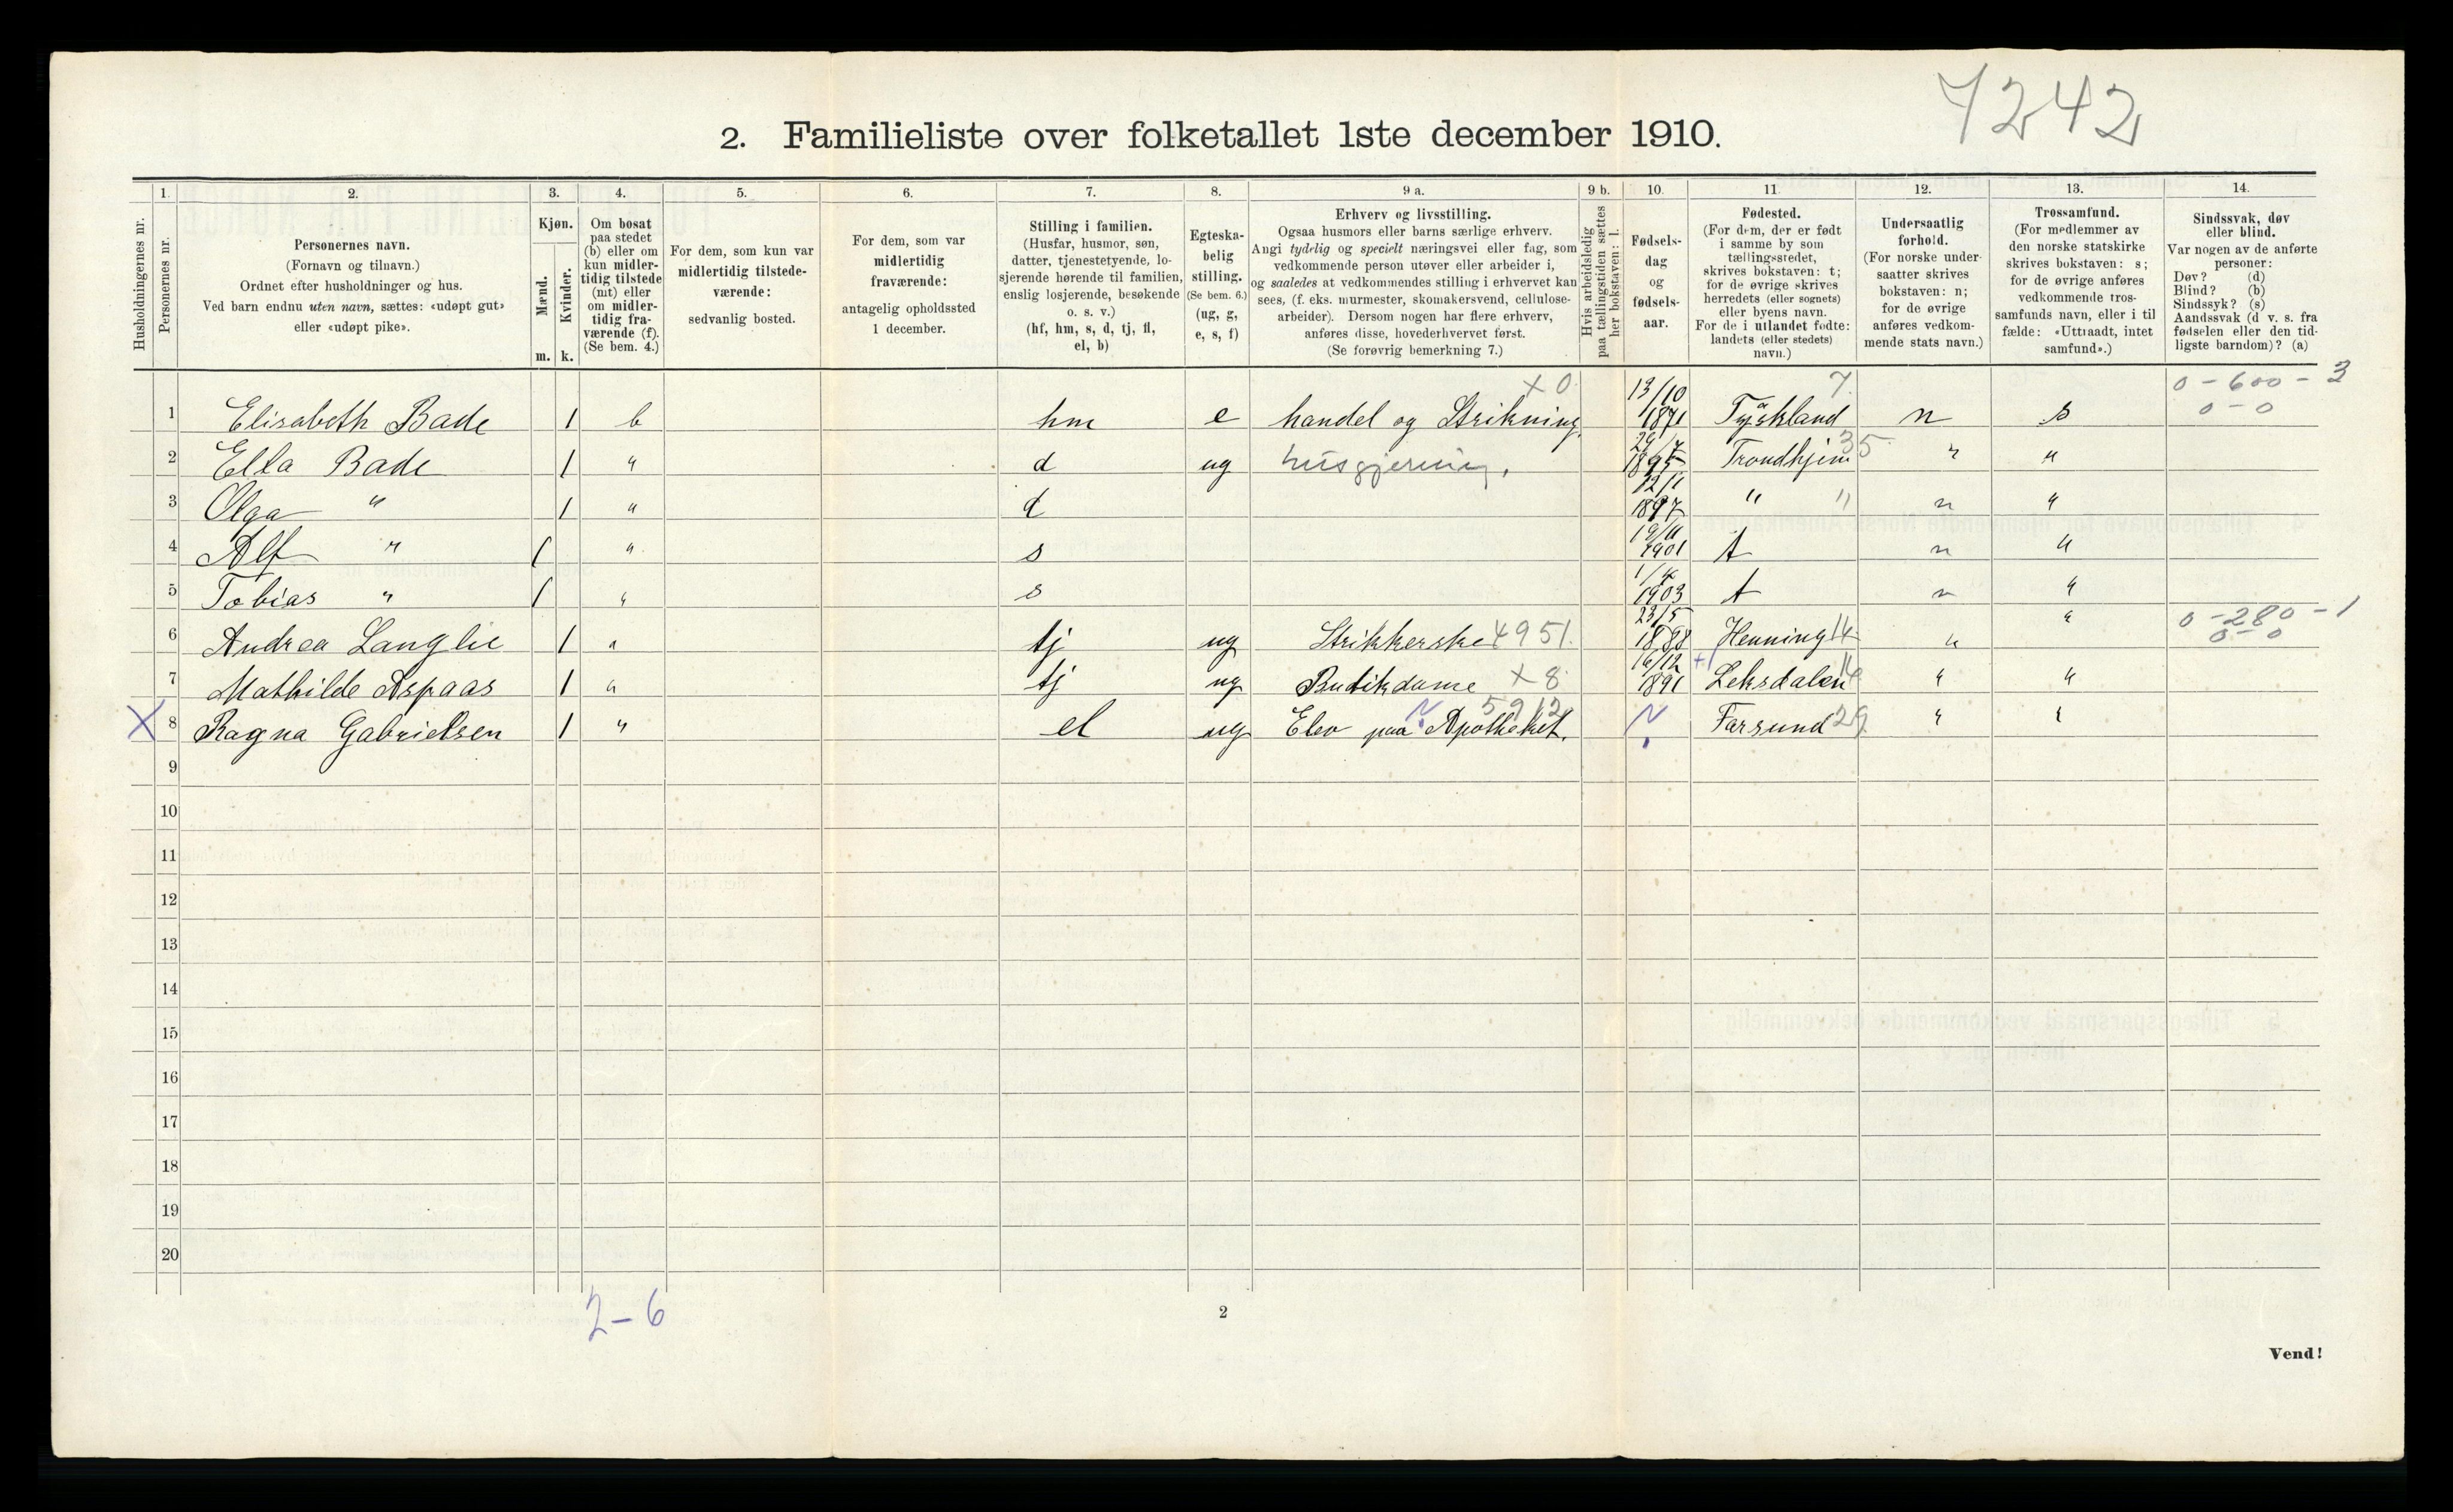 7242
2. Familieliste over folketallet 1ste december 1910.
Husholdningernes nr.
1. Personernes nr.
2. Personernes navn. (Fornavn og tilnavn.) Ordnet efter husholdninger og hus. Ved barn endnu uten navn, sættes: «udøpt gut» eller «udøpt pike».
3. Kjøn. Mænd. m. Kvinder. k.
4. Om bosat paa stedet (b) eller om kun midlertidig tilstede (mt) eller om midlertidig fraværende (f). (Se bem. 4.)
5. For dem, som kun var midlertidig tilstedeværende: sedvanlig bosted.
6. For dem, som var midlertidig fraværende: antagelig opholdssted 1 december.
7. Stilling i familien. (Husfar, husmor, søn, datter, tjenestetyende, losjerende hørende til familien, enslig losjerende, besøkende o. s. v.) (hf, hm, s, d, tj, fl, el, b)
8. Egteskabelig stilling. (Se bem. 6.) (ug, g, e, s, f)
9 a. Erhverv og livsstilling. Ogsaa husmors eller barns særlige erhverv. Angi tydelig og specielt næringsvei eller fag, som vedkommende person utøver eller arbeider i, og saaledes at vedkommendes stilling i erhvervet kan sees, (f. eks. murmester, skomakersvend, cellulosearbeider). Dersom nogen har flere erhverv, anføres disse, hovederhvervet først. (Se forøvrig bemerkning 7.)
9 b. Hvis arbeidsledig paa tællingstiden sættes her bokstaven: l.
10. Fødselsdag og fødselsaar.
11. Fødested. (For dem, der er født i samme by som tællingsstedet, skrives bokstaven: t; for de øvrige skrives herredets (eller sognets) eller byens navn. For de i utlandet fødte: landets (eller stedets) navn.)
12. Undersaatlig forhold. (For norske undersaatter skrives bokstaven: n; for de øvrige anføres vedkommende stats navn.)
13. Trossamfund. (For medlemmer av den norske statskirke skrives bokstaven: s; for de øvrige anføres vedkommende trossamfunds navn, eller i tilfælde: «Uttraadt, intet samfund».)
14. Sindssvak, døv eller blind. Var nogen av de anførte personer: Døv? (d) Blind? (b) Sindssyk? (s) Aandssvak (d v. s. fra fødselen eller den tidligste barndom)? (a)
1 Elisabeth Bade 1 b hm e handel og Strikning x 0 13/10 1871 Tyskland 7 n s 0 - 600 - 3 0 - 0
2 Ella Bade 1 " d ug husgjerning. 1895 Trondhjem 35 " "
3 Olga " 1 " d 12/11 1897 " " n "
4 Alf " 1 " s 1901 t n "
5 Tobias " 1 " s 1903 t n "
6 Andrea Langlie 1 " tj ug Strikkerske 4951. 23/5 1888 Henning 14 " " 0 - 280 - 1 0 - 0
7 Mathilde Aspaas 1 " tj ug Butikdame x 8 16/12 1891 Leksdalen 14 " "
X 8 Ragna Gabrielsen 1 " el ug Elev paa Apotheket. 5912 Farsund 29 " "
9
10
11
12
13
14
15
16
17
18
19
20
2 - 6
2
Vend!